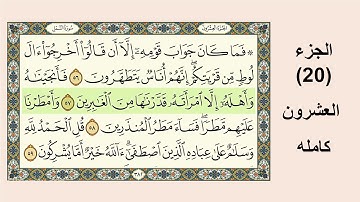 الجزء العشرون
سورة النمل
۞ فَمَا كَانَ جَوَابَ قَوْمِهِ إِلَّا أَن قَالُوا أَخْرِجُوا ءَالَ
لُوطٍ مِّن قَرْيَتِكُمْ إِنَّهُمْ أُنَاسٌ يَتَطَهَّرُونَ ٥٦ فَأَنجَيْنَاهُ
وَأَهْلَهُ إِلَّا امْرَأَتَهُ قَدَّرْنَاهَا مِنَ الْغَابِرِينَ ٥٧ وَأَمْطَرْنَا
عَلَيْهِم مَّطَرًا فَسَاءَ مَطَرُ الْمُنذَرِينَ ٥٨ قُلِ الْحَمْدُ لِلَّهِ
وَسَلَامٌ عَلَى عِبَادِهِ الَّذِينَ اصْطَفَى ءَاللَّهُ خَيْرٌ أَمَّا يُشْرِكُونَ ٥٩
٣٨١
الجزء
(20)
العشرون
كامله